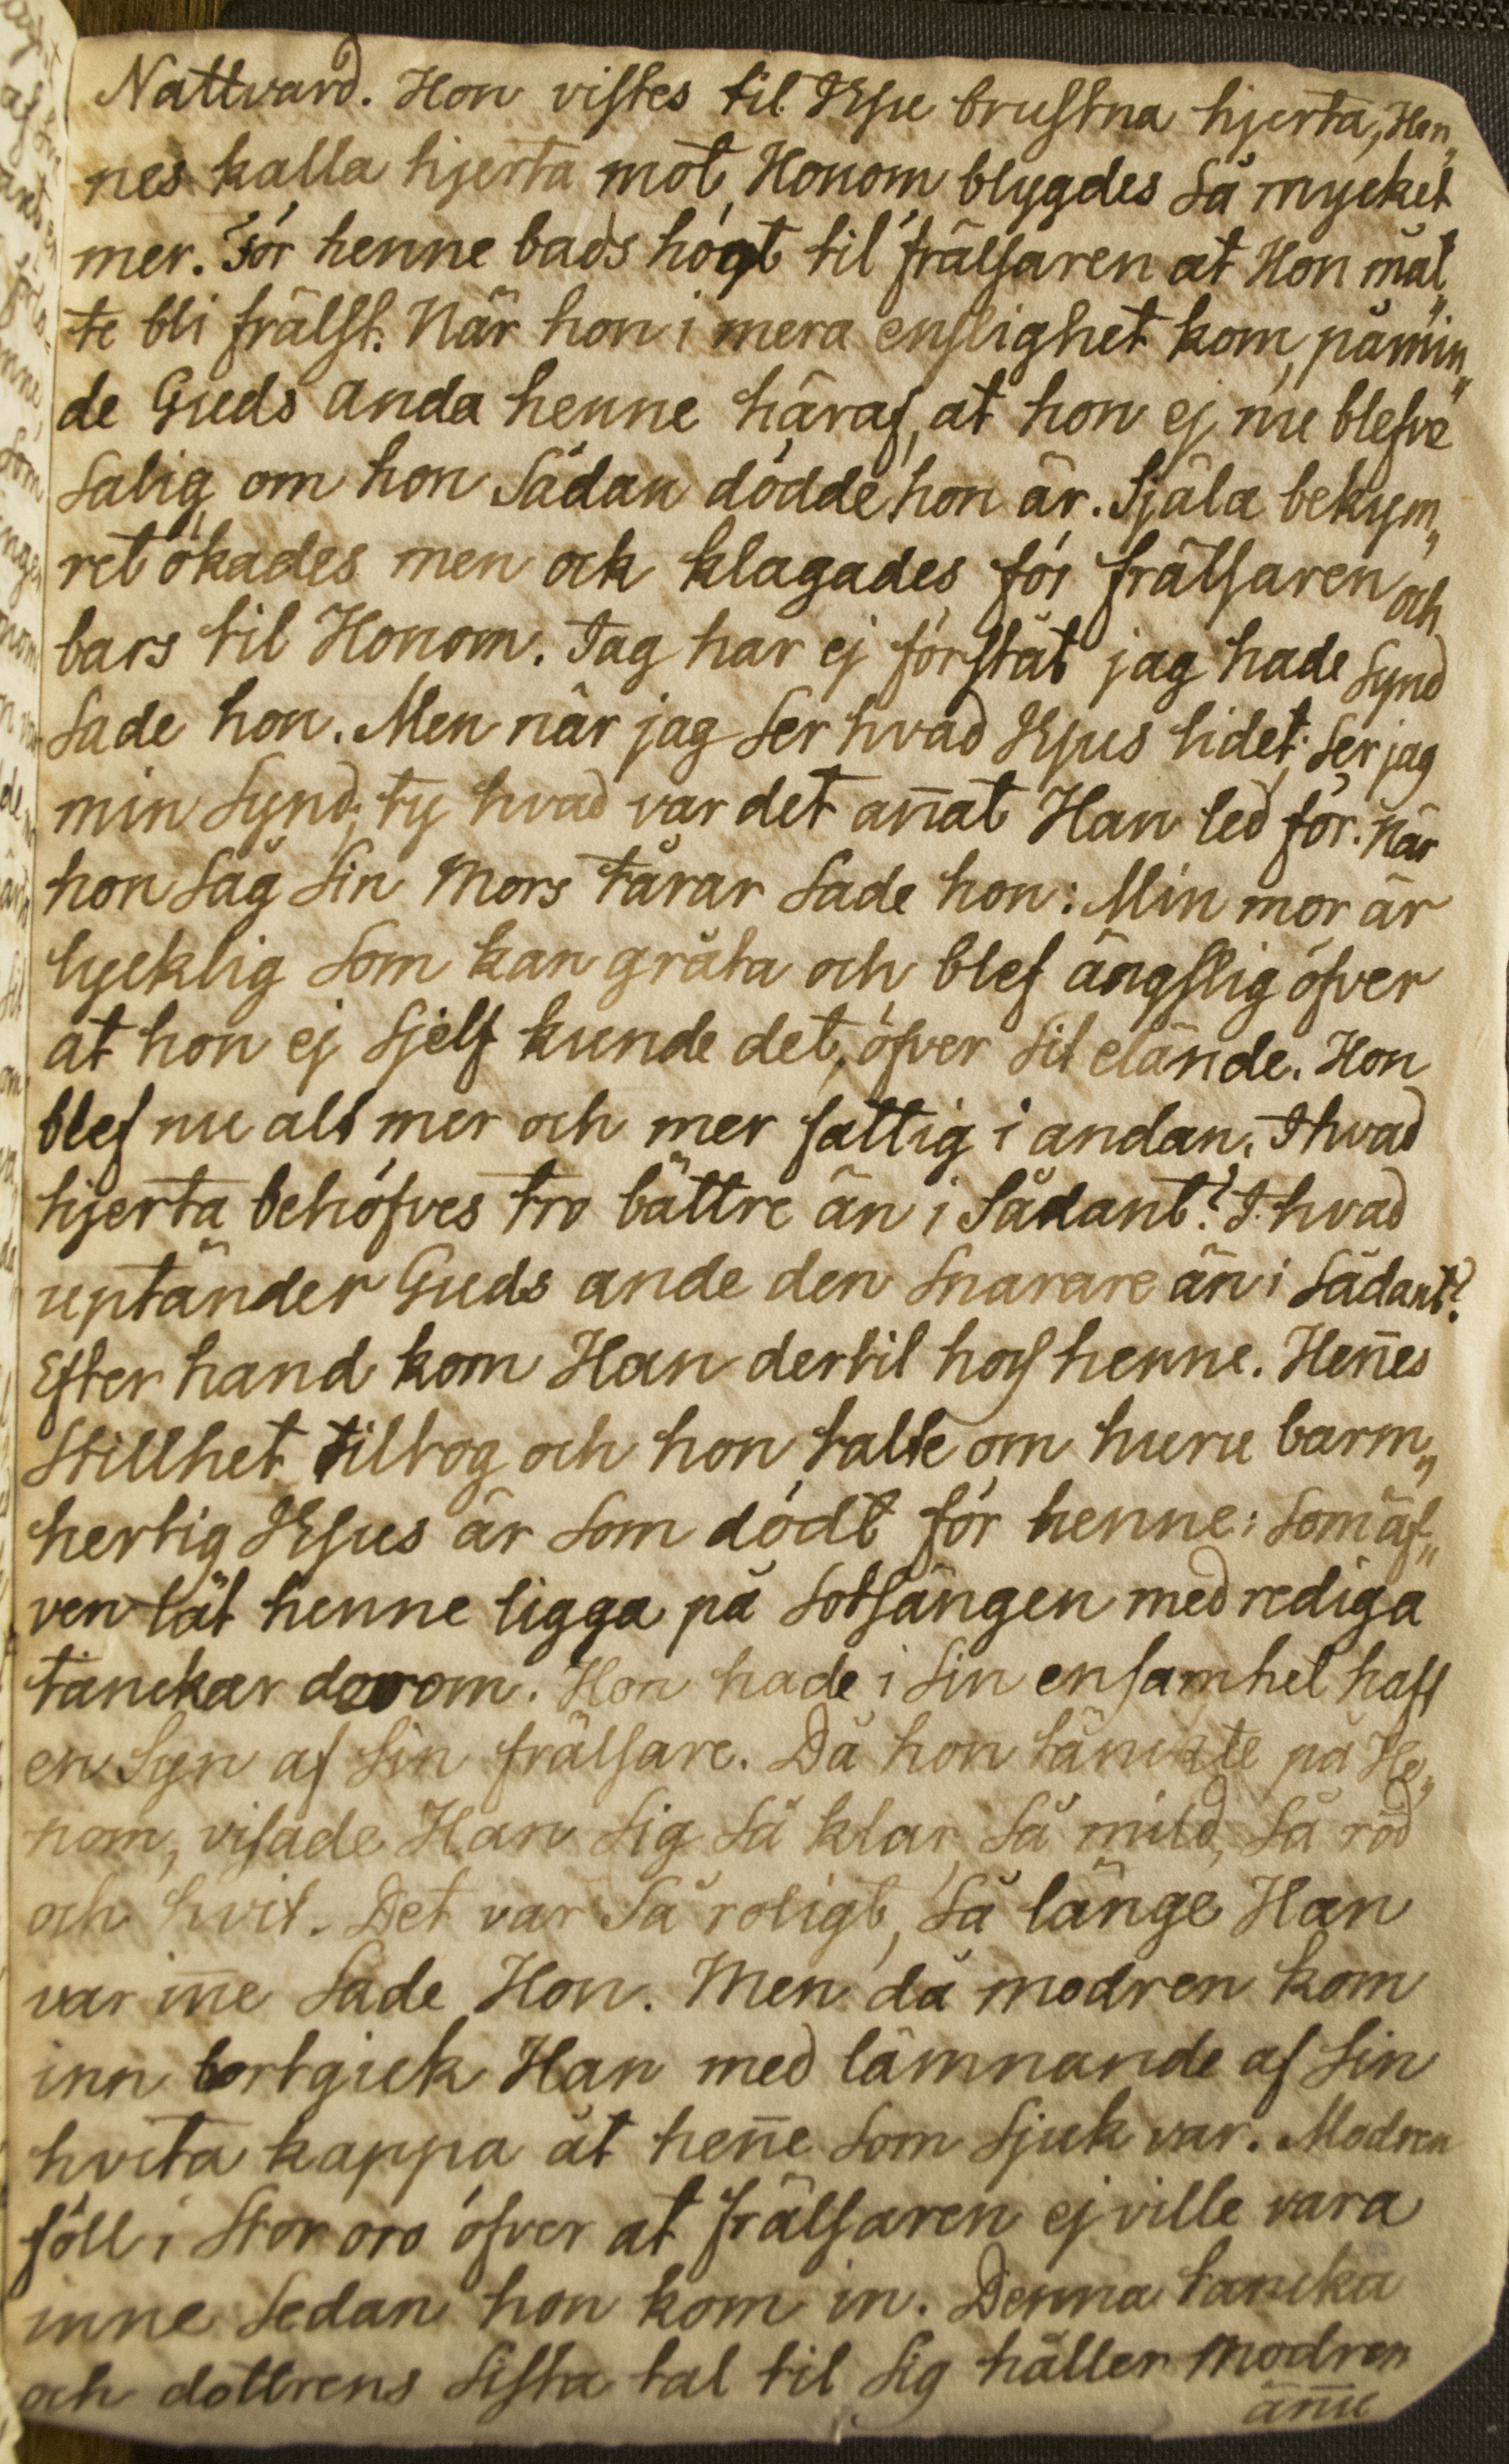 Nattvard. Hon vistes til JEsu brustna hjerta, Hen„
nes kalla hjerta mot Honom blygdes så mycket
mer. För henne bads högt til frälsaren at Hon måt„
te bli frälst. När hon i mera enslighet kom, påmin„
de Guds Anda henne häraf, at hon ej nu blefve
salig om hon sådan dödde hon är. Själa bekym„
ret ökades men ock klagades för frälsaren och
bars til Honom. Jag har ej förståt jag hade synd
sade hon. Men när jag ser hvad JEsus lidet; ser jag
min synd; ty hvad var det an̄at Han led för. När
hon såg sin Mors tårar sade hon: Min mor är
lycklig som kan gråta och blef ängslig öfver
at hon ej sjelf kunde det, öfver sit elände. Hon
blef nu alt mer och mer fattig i andan. I hvad
hjerta behöfves tro bättre än i sådant? I hvad
uptänder Guds ande den snarare än i sådant?
Efter hand kom Han dertil hos henne. Hen̄es
stillhet tiltog och hon talte om huru barm„
hertig JEsus är som dödt för henne: som äf„
ven låt henne ligga på sotsängen med rediga
tanckar derom. Hon hade i sin ensamhet haft
en syn af sin frälsare. Då hon tänckte på Ho„
nom, visade Han sig så klar, så mild, så röd
och hvit. Det var så roligt, så länge Han
var in̄e sade Hon. Men då modren kom
inn bortgick Han med lämnande af sin
hvita kappa åt hen̄e som sjuk var. Modren
föll i stor oro öfver at frälsaren ej ville vara
inne sedan hon kom in. Denna tancka
och dottrens sista tal til sig håller modren
än̄u